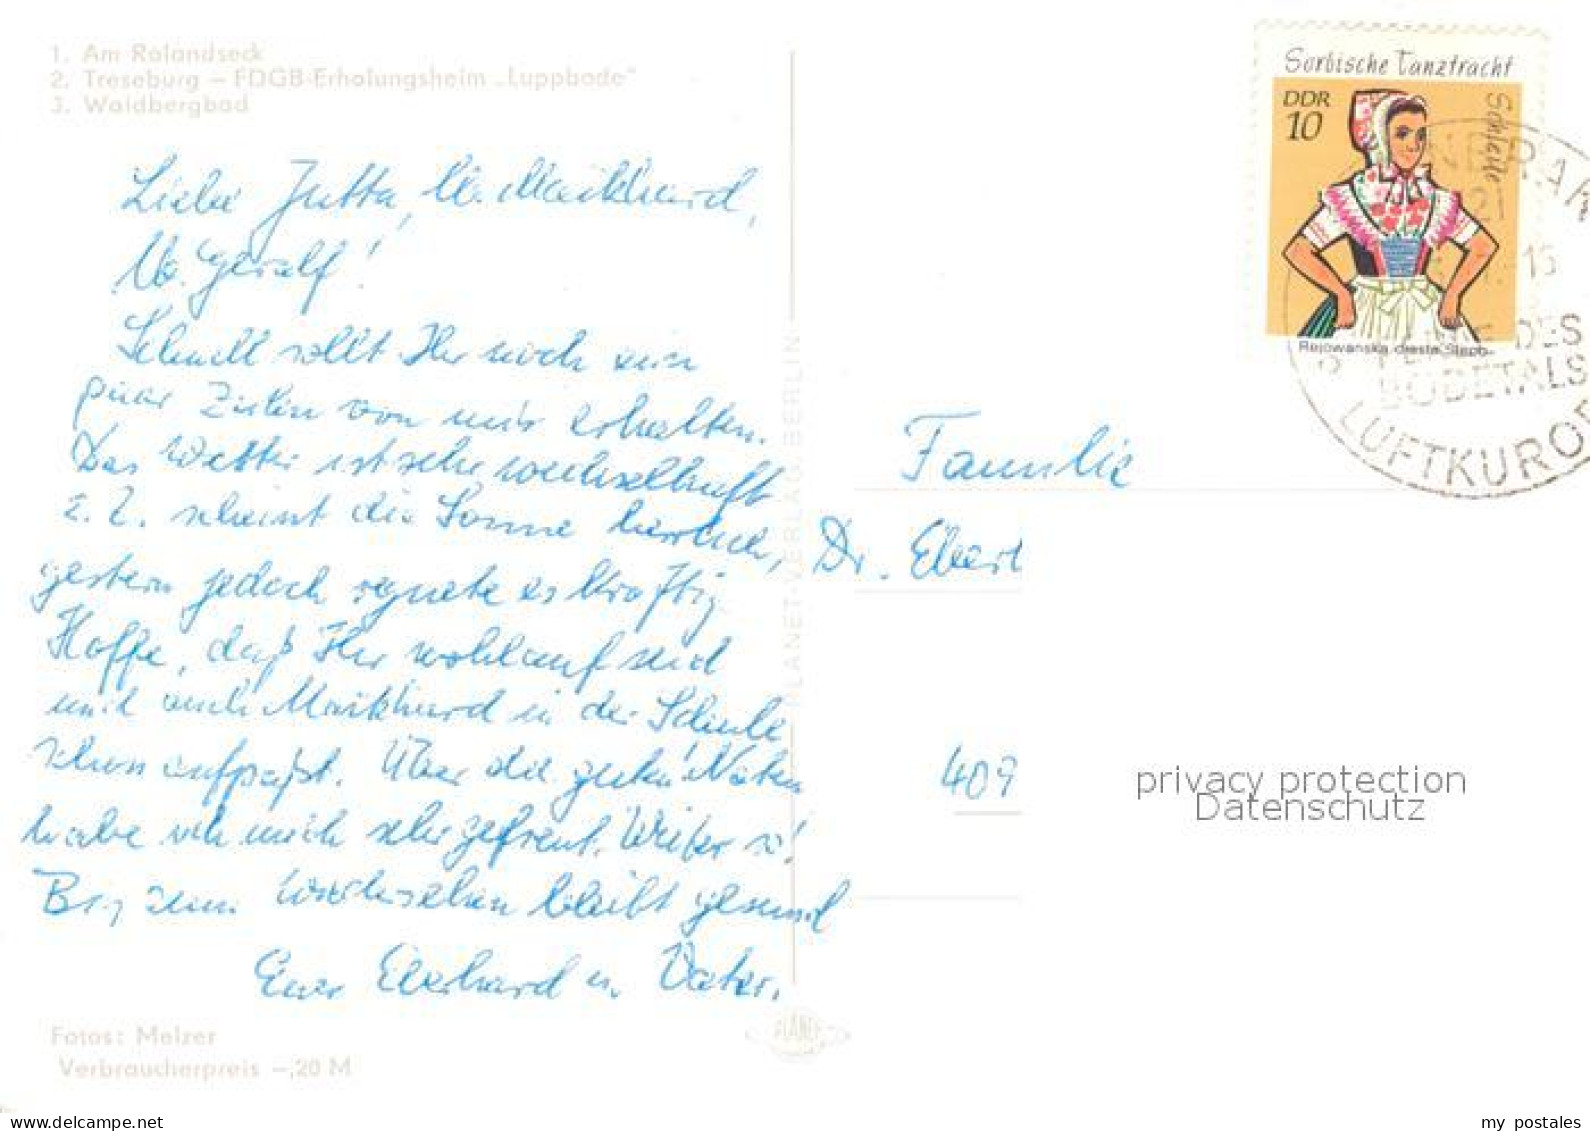 1. Am Rolandseck
2. Treseburg – FDGB-Erholungsheim „Luppbode“
3. Waldbergbad
Liebe Jutta, lb. Maikhard,
lb. Geralf!
Schnell sollt Ihr noch ein
paar Zeilen von mir erhalten.
Das Wetter ist sehr wechselhaft
z. Z. scheint die Sonne herrlich,
gestern jedoch regnete es kräftig.
Hoffe, daß Ihr wohlauf seid
und auch Maikhard in der Schule
schön aufpaßt. Über die guten Noten
habe ich mich sehr gefreut. Weiter so!
Bis zum Wiedersehen bleibt gesund
Euer Eberhard u. Vater.
Fotos: Melzer
Verbraucherpreis –,20 M
PLANET-VERLAG BERLIN
PLANET
Sorbische Tanztracht
Schleife
DDR
10
Rejowanska drasta Slepo
15
DES
BODETALS
LUFTKUROR
Familie
Dr. Ebert
409
privacy protection
Datenschutz
www.delcampe.net
my_postales